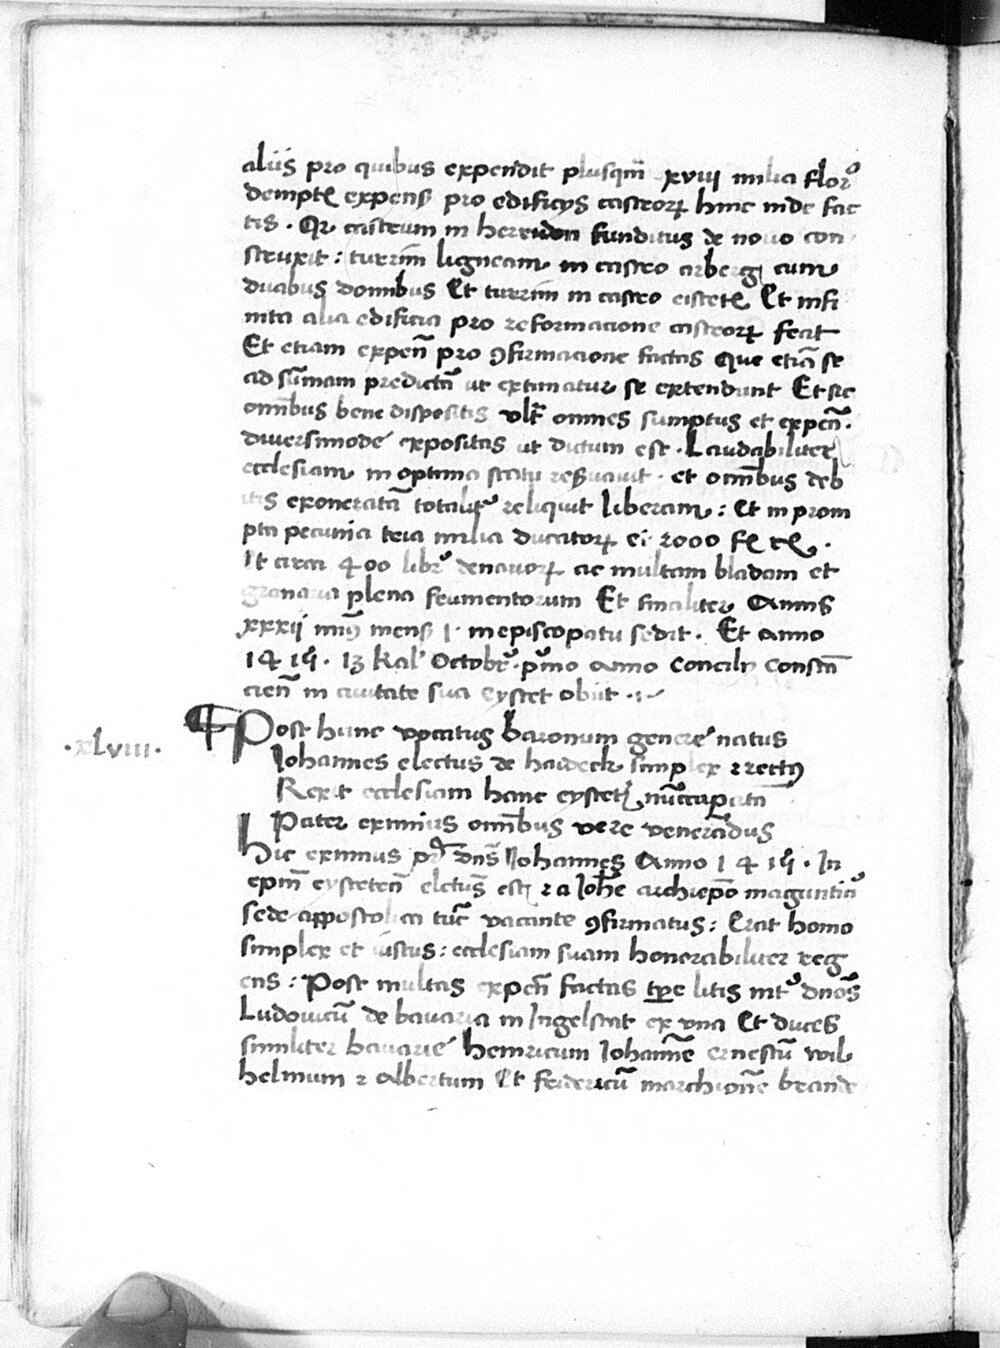 aliis pro quibus expendit plusqm̄ xviii milia flor⁹
demptꝭ expensꝭ pro edificijs castroꝝ hinc inde fac
tis . Qr castrum in herriden funditus de nouo con
struxit : turrim ligneam in castro arberg cum
duabus domibus Et turrim in castro eistetꝭ Et infi
nita alia edificia pro reformacione castroꝝ fecit
Et etiam expen̄ pro ꝯfirmacione factas Que etiā se
ad sūmam predictā ut extimatur se extendunt Et sic
omībus bene dispositis vltͣ omnes sumptus et expen̄ .
diuersimode expositas ut dictum est . Laudabiliter
ecclesiam in optimo statu reẞuauit . et omībus deb
itis exoneratā totalitʼ reliquit liberam : Et in prom
pta pecunia tria milia ducatoꝝ ei 2000 fꝭ rꝭ .
It circa 400 librʼ denarioꝝ ac multam bladam et
granaria plena frumentorum Et finaliter Annis
xxxii minꝰ mensꝭ 1 . in episcopatu sedit . Et anno
1415 . 13 kalʼ Octobrʼ . pͥmo anno Concilij Constā
cien̄ in ciuitate sua Eystet obiit .
.xlviii. Post hunc vocatus baronum genere natus
Johannes electus de haideck simplex ꝛ rectꝰ
Rexit ecclesiam hanc eystetꝭ nūccupata
Pater eximius omībus vere venerādus
Hic eximius pr̄ dn̄s Johannes Anno 1415 . In
epm̄ eysteten̄ electus est ꝛ a Joh̄e archiepō maguntin̄
sede appostolica tūc vacante ꝯfirmatus : Erat homo
simplex et iustus : ecclesiam suam honorabiliter reg
ens : Post multas expen̄ factas tp̄e litis intʼ dnōs
Ludouicū de bauaria in Ingelstat ex vna Et duces
similiter bauarie heinricum Johannē ernestū wil
helmum ꝛ albertum Et fridericū marchionē brande